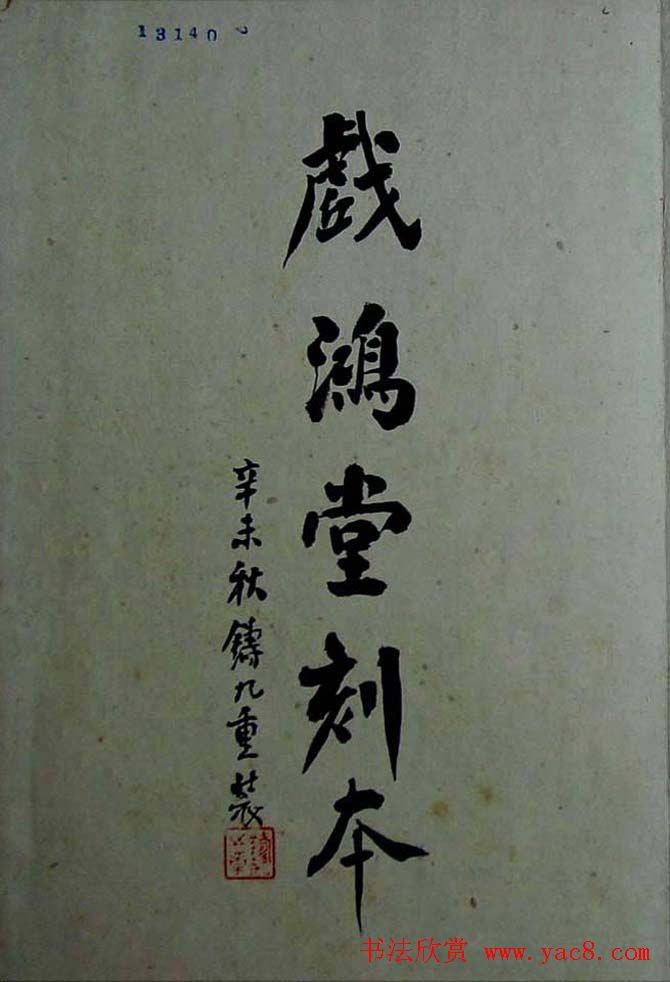 13140
戲鴻堂刻本
辛未秋鑄九重裝
书法欣赏 www.yac8.com